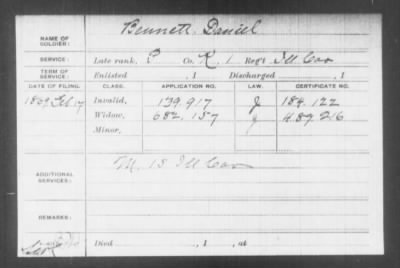 NAME OF SOLDIER: Bennett, Daniel
SERVICE: Late rank, P Co. K, 1 Reg't Ill Cav
TERM OF SERVICE: Enlisted , 1 Discharged , 1
DATE OF FILING. CLASS. APPLICATION NO. LAW. CERTIFICATE NO.
1869 Feb 17 Invalid, 139.917 J 184.122
Widow, 682.157 J 489.216
Minor,
ADDITIONAL SERVICES: M. 15 Ill Cav
REMARKS:
Died , 1 , at